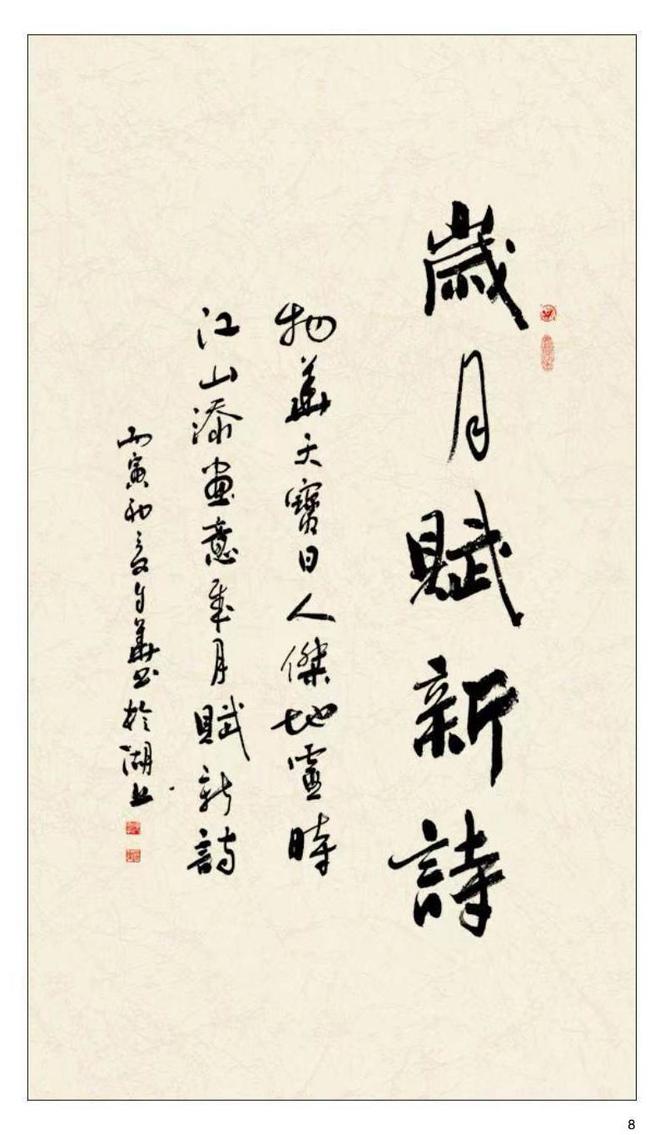 歲月賦新詩
物華天寶日人傑地靈時
江山添畫意歲月賦新詩
丙寅初夏自華書於湖上
8